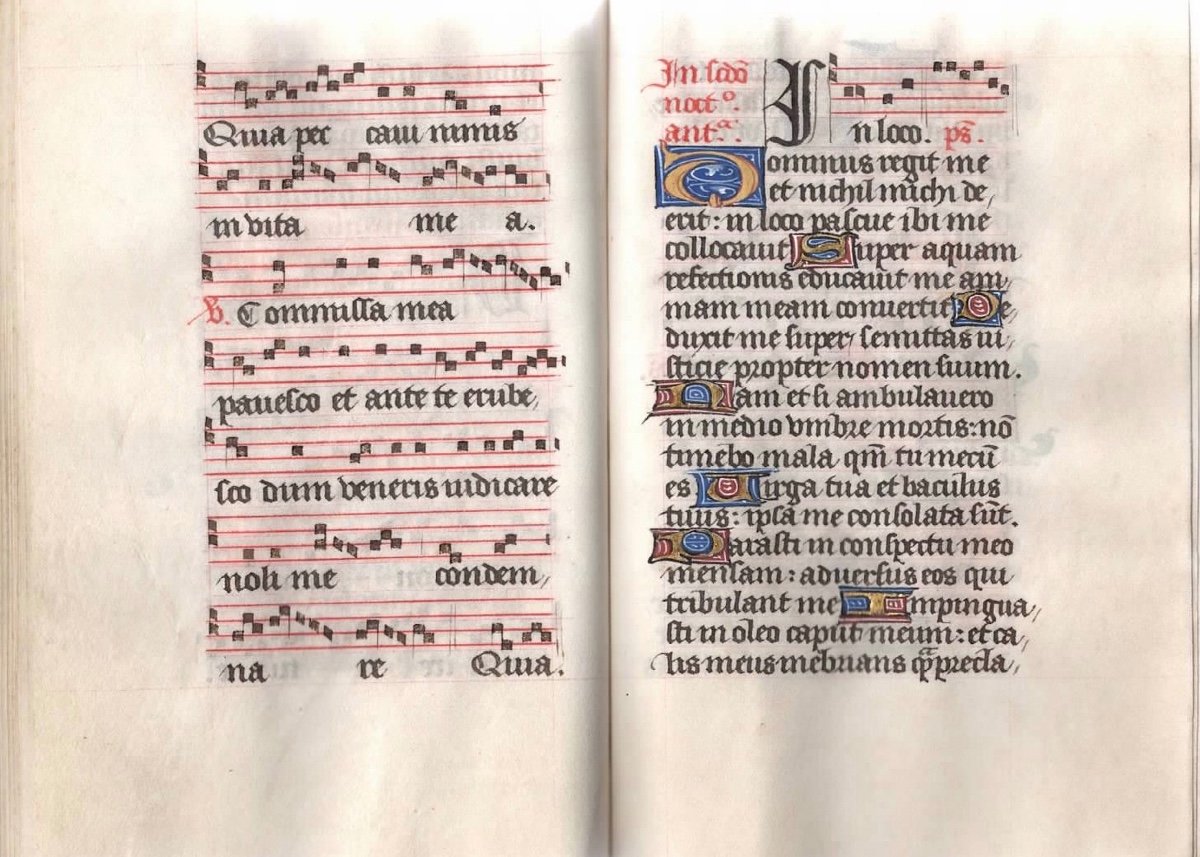 Quia pec caui nimis
in vita me a.
V. Commissa mea
pauesco et ante te erube,
sco dum veneris iudicare
noli me condem,
na re Quia.
In scdo
noct°.
ant.ª
In loco. ps̄.
Dominus regit me
et nichil michi de,
erit: in loco pascue ibi me
collocauit Super aquam
refectionis educauit me ani,
mam meam conuertit De,
duxit me super semittas iu,
sticie propter nomen suum.
Nam et si ambulauero
in medio vmbre mortis: nō
timebo mala qm̄ tu mecū
es Uirga tua et baculus
tuus: ipsa me consolata sūt.
Parasti in conspectu meo
mensam: aduersus eos qui
tribulant me Impingua,
sti in oleo caput meum: et ca,
lis meus inebrians qᵃ̄ precla,